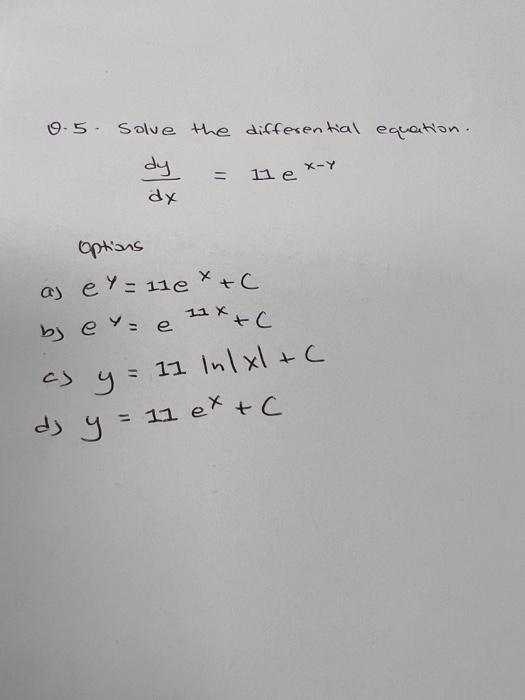 Q.5. Solve the differential equation.
dy/dx = 11 e^(x-y)
Options
a) e^y = 11e^x + C
b) e^y = e^11x + C
c) y = 11 ln|x| + C
d) y = 11 e^x + C